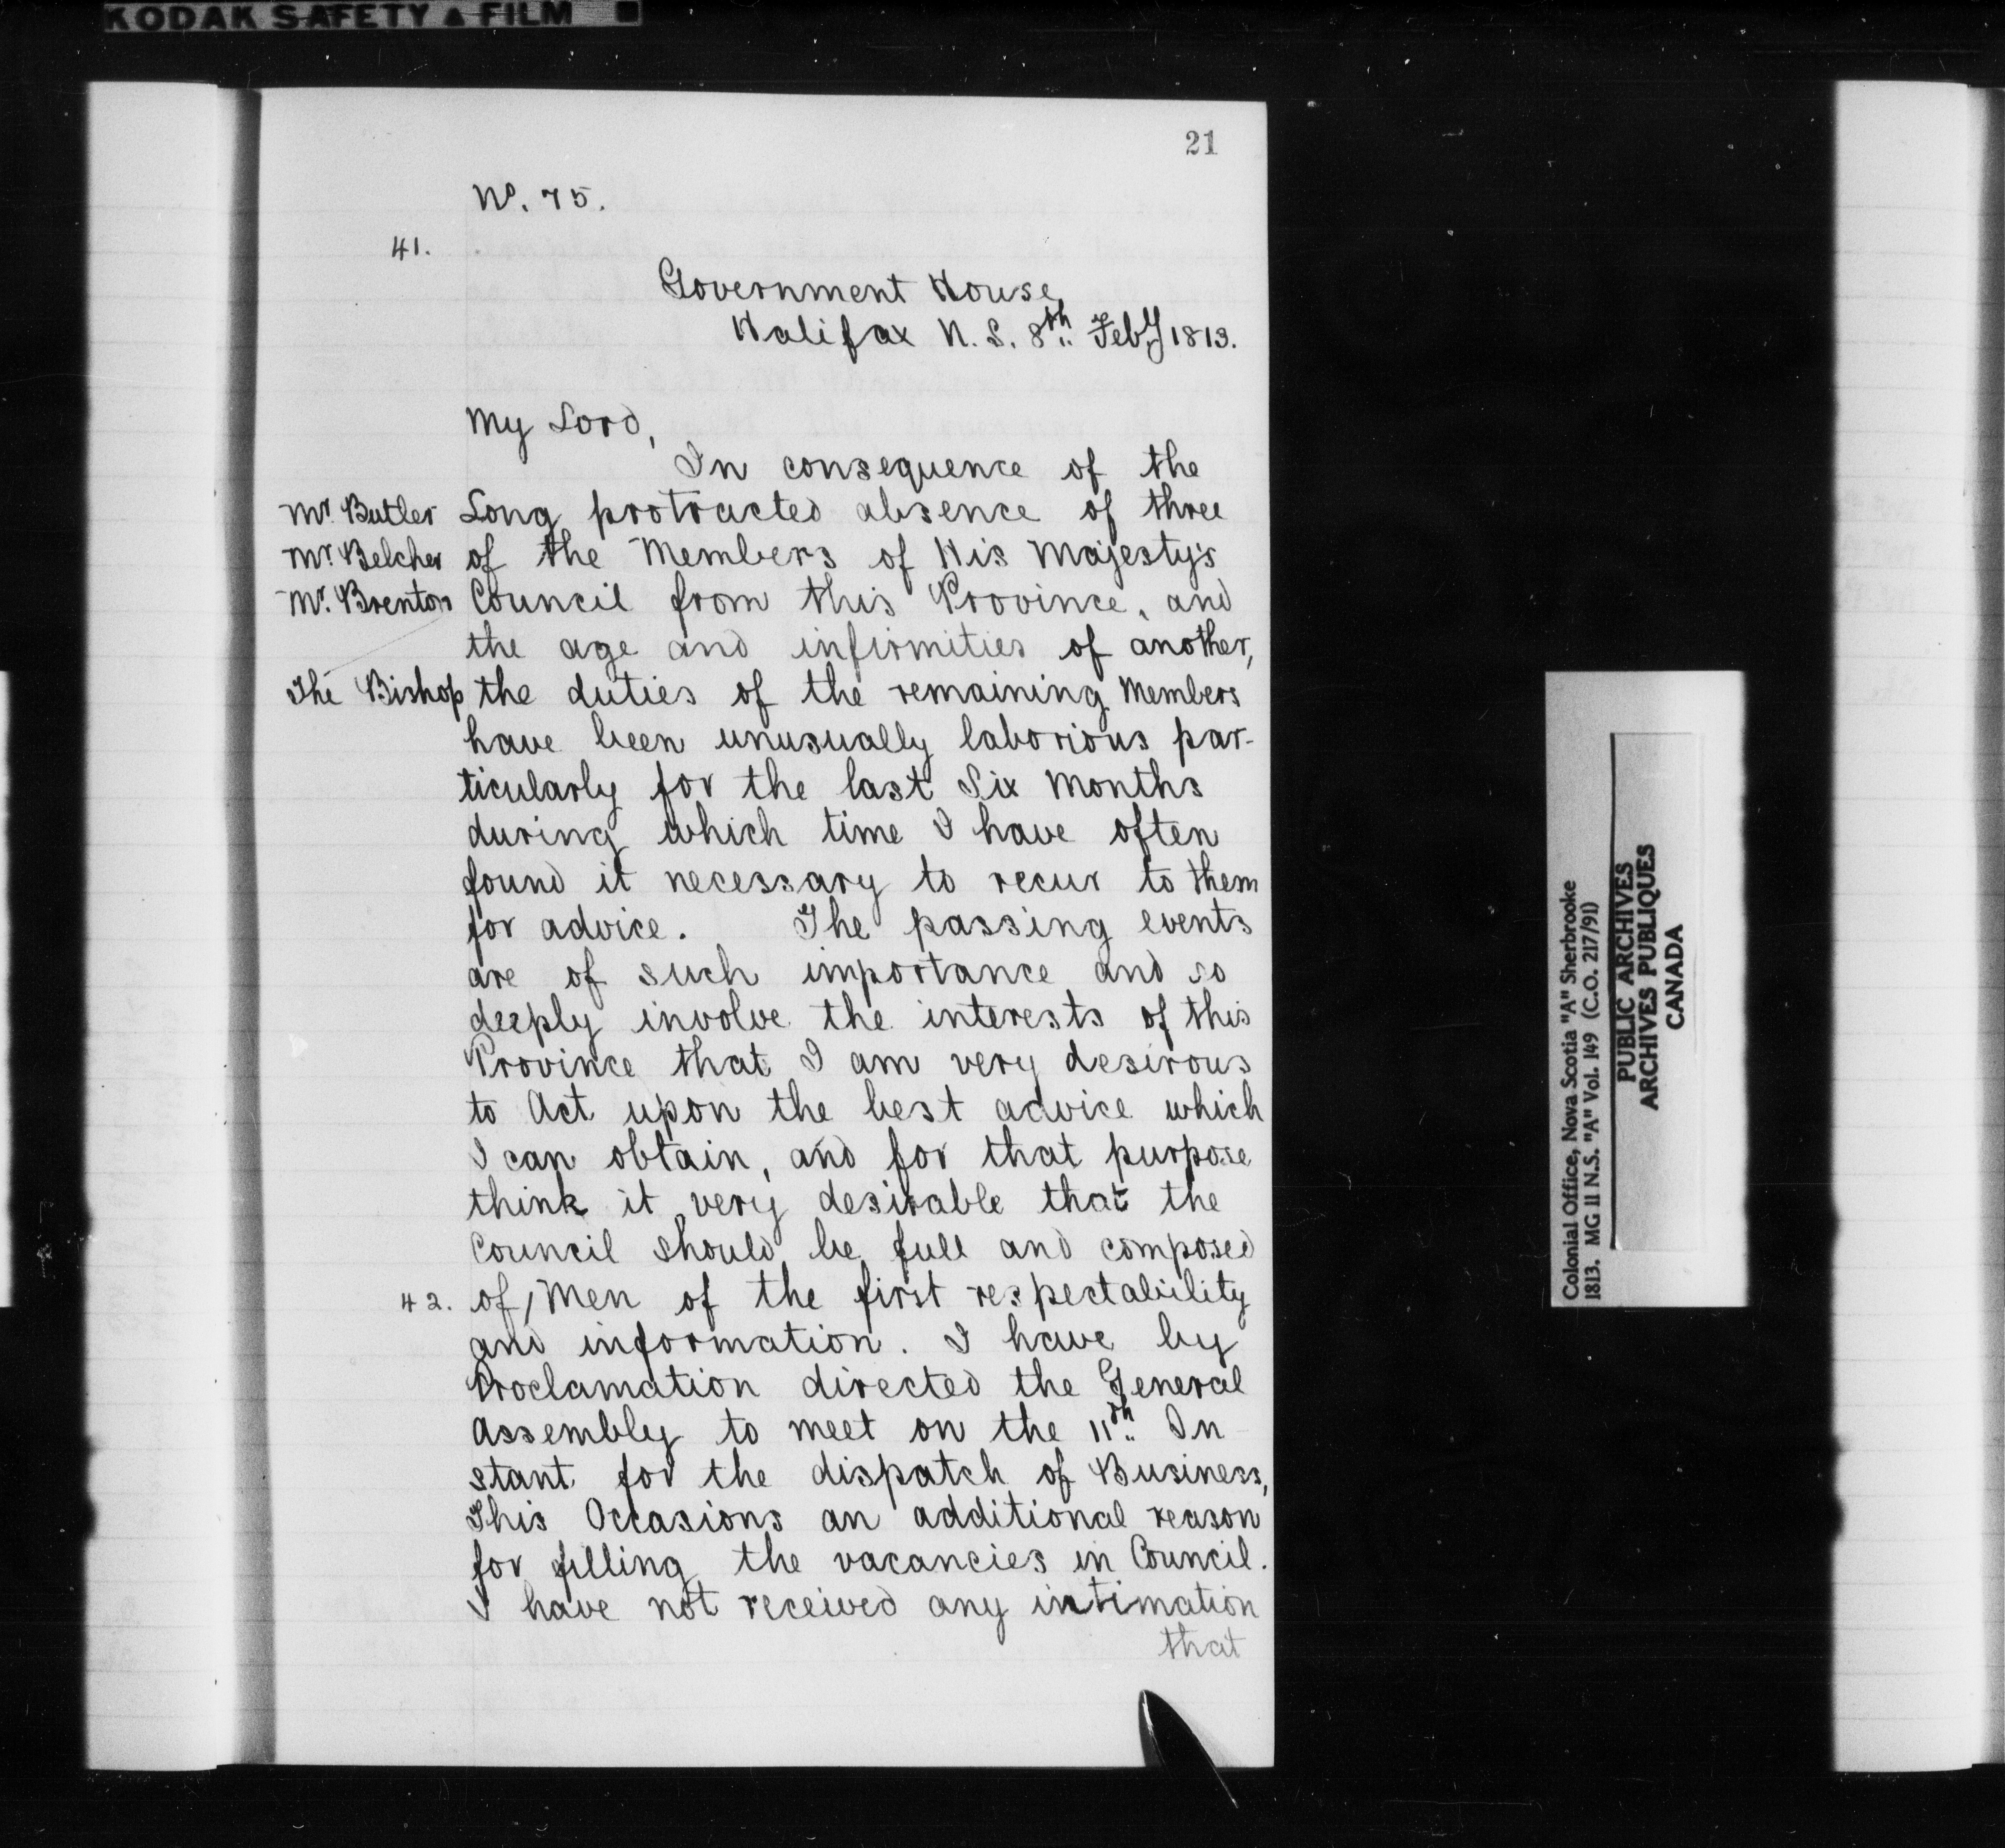 KODAK SAFETY FILM
21
No. 75.
41.
Government House,
Halifax N. S. 8th Feby 1813.
My Lord,
In consequence of the
Mr. Butler Long protracted absence of three
Mr. Belcher of the Members of His Majesty's
Mr. Brenton Council from this Province, and
the age and infirmities of another,
The Bishop the duties of the remaining Members
have been unusually laborious par-
ticularly for the last Six Months
during which time I have often
found it necessary to recur to them
for advice. The passing events
are of such importance and so
deeply involve the interests of this
Province that I am very desirous
to Act upon the best advice which
I can obtain, and for that purpose
think it very desirable that the
Council should be full and composed
42. of / Men of the first respectability
and information. I have by
Proclamation directed the General
Assembly to meet on the 11th In
stant for the dispatch of Business,
This Occasions an additional reason
for filling the vacancies in Council.
I have not received any intimation
that
Colonial Office, Nova Scotia "A" Sherbrooke
1813. MG 11 N.S. "A" Vol. 149 (C.O. 217/91)
PUBLIC ARCHIVES
ARCHIVES PUBLIQUES
CANADA